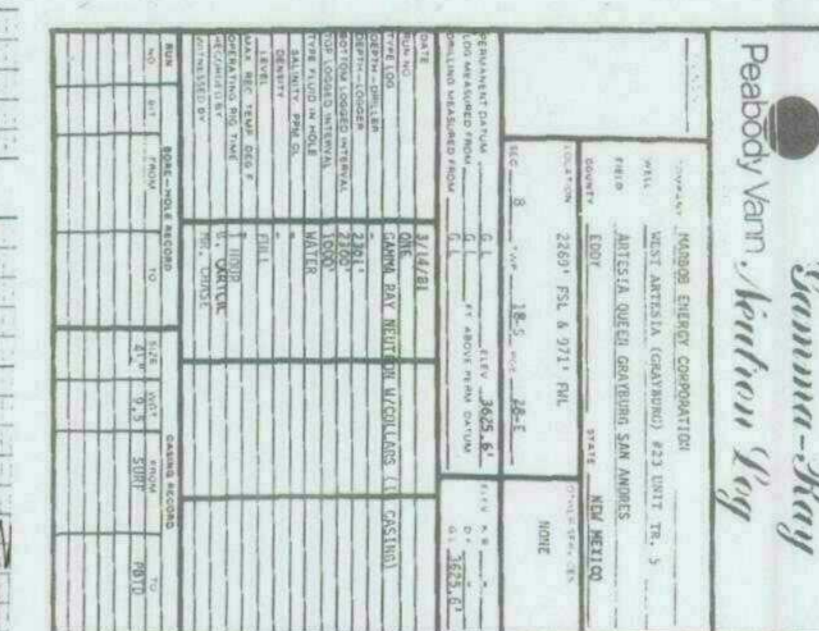 Gamma-Ray
Peabody Vann Neution Log
COMPANY MARBOB ENERGY CORPORATION
WELL WEST ARTESIA (GRAYBURG) #23 UNIT TR. 5
FIELD ARTESIA QUEEN GRAYBURG SAN ANDRES
COUNTY EDDY STATE NEW MEXICO
LOCATION OTHER SERVICES
2269' FSL & 971' FWL NONE
SEC 8 TWP 18-S RGE 28-E
PERMANENT DATUM G L ELEV 3625.6' ELEV K B -
LOG MEASURED FROM G L FT ABOVE PERM DATUM D F -
DRILLING MEASURED FROM G L G L 3625.6'
DATE 3/14/81
RUN NO ONE
TYPE LOG GAMMA RAY NEUTRON W/COLLARS (IN CASING)
DEPTH-DRILLER -
DEPTH-LOGGER 2301'
BOTTOM LOGGED INTERVAL 2300'
TOP LOGGED INTERVAL 1000'
TYPE FLUID IN HOLE WATER
SALINITY PPM CL -
DENSITY -
LEVEL FULL
MAX REC TEMP DEG F
OPERATING RIG TIME 1 HOUR
RECORDED BY CARTER
WITNESSED BY MR. CHASE
RUN BORE-HOLE RECORD CASING RECORD
NO BIT FROM TO SIZE WGT FROM TO
9.5 SURF PBTD